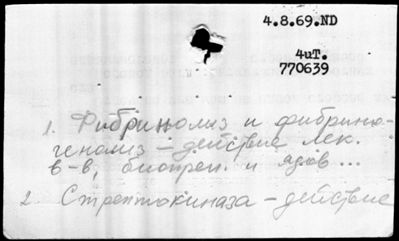 4.8.69.ND
4uT.
770639
1. Фибринолиз и фибрино-
генолиз - действие лек.
в-в, биопреп. и ядов...
2. Стрептокиназа - действие